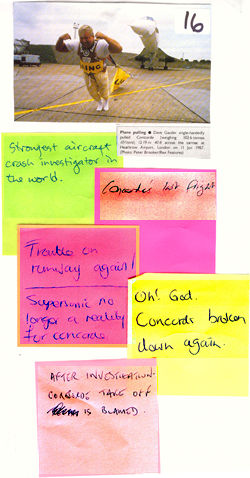 16
KING
Plane pulling ● Dave Gauder single-handedly
pulled Concorde (weighing 102.6 tonnes
12.19 m 40 ft across the tarmac at
Heathrow Airport, London on 11 Jun 1987.
(Photo: Peter Brooker/Rex Features)
Strongest aircraft
crash investigator in
the world.
Concorde's last flight
Trouble on
runway again!
Supersonic no
longer a reality
for concorde.
Oh! God.
Concorde broken
down again.
AFTER INVESTIGATION.
CONCORDE TAKE OFF
IS BLAMED.